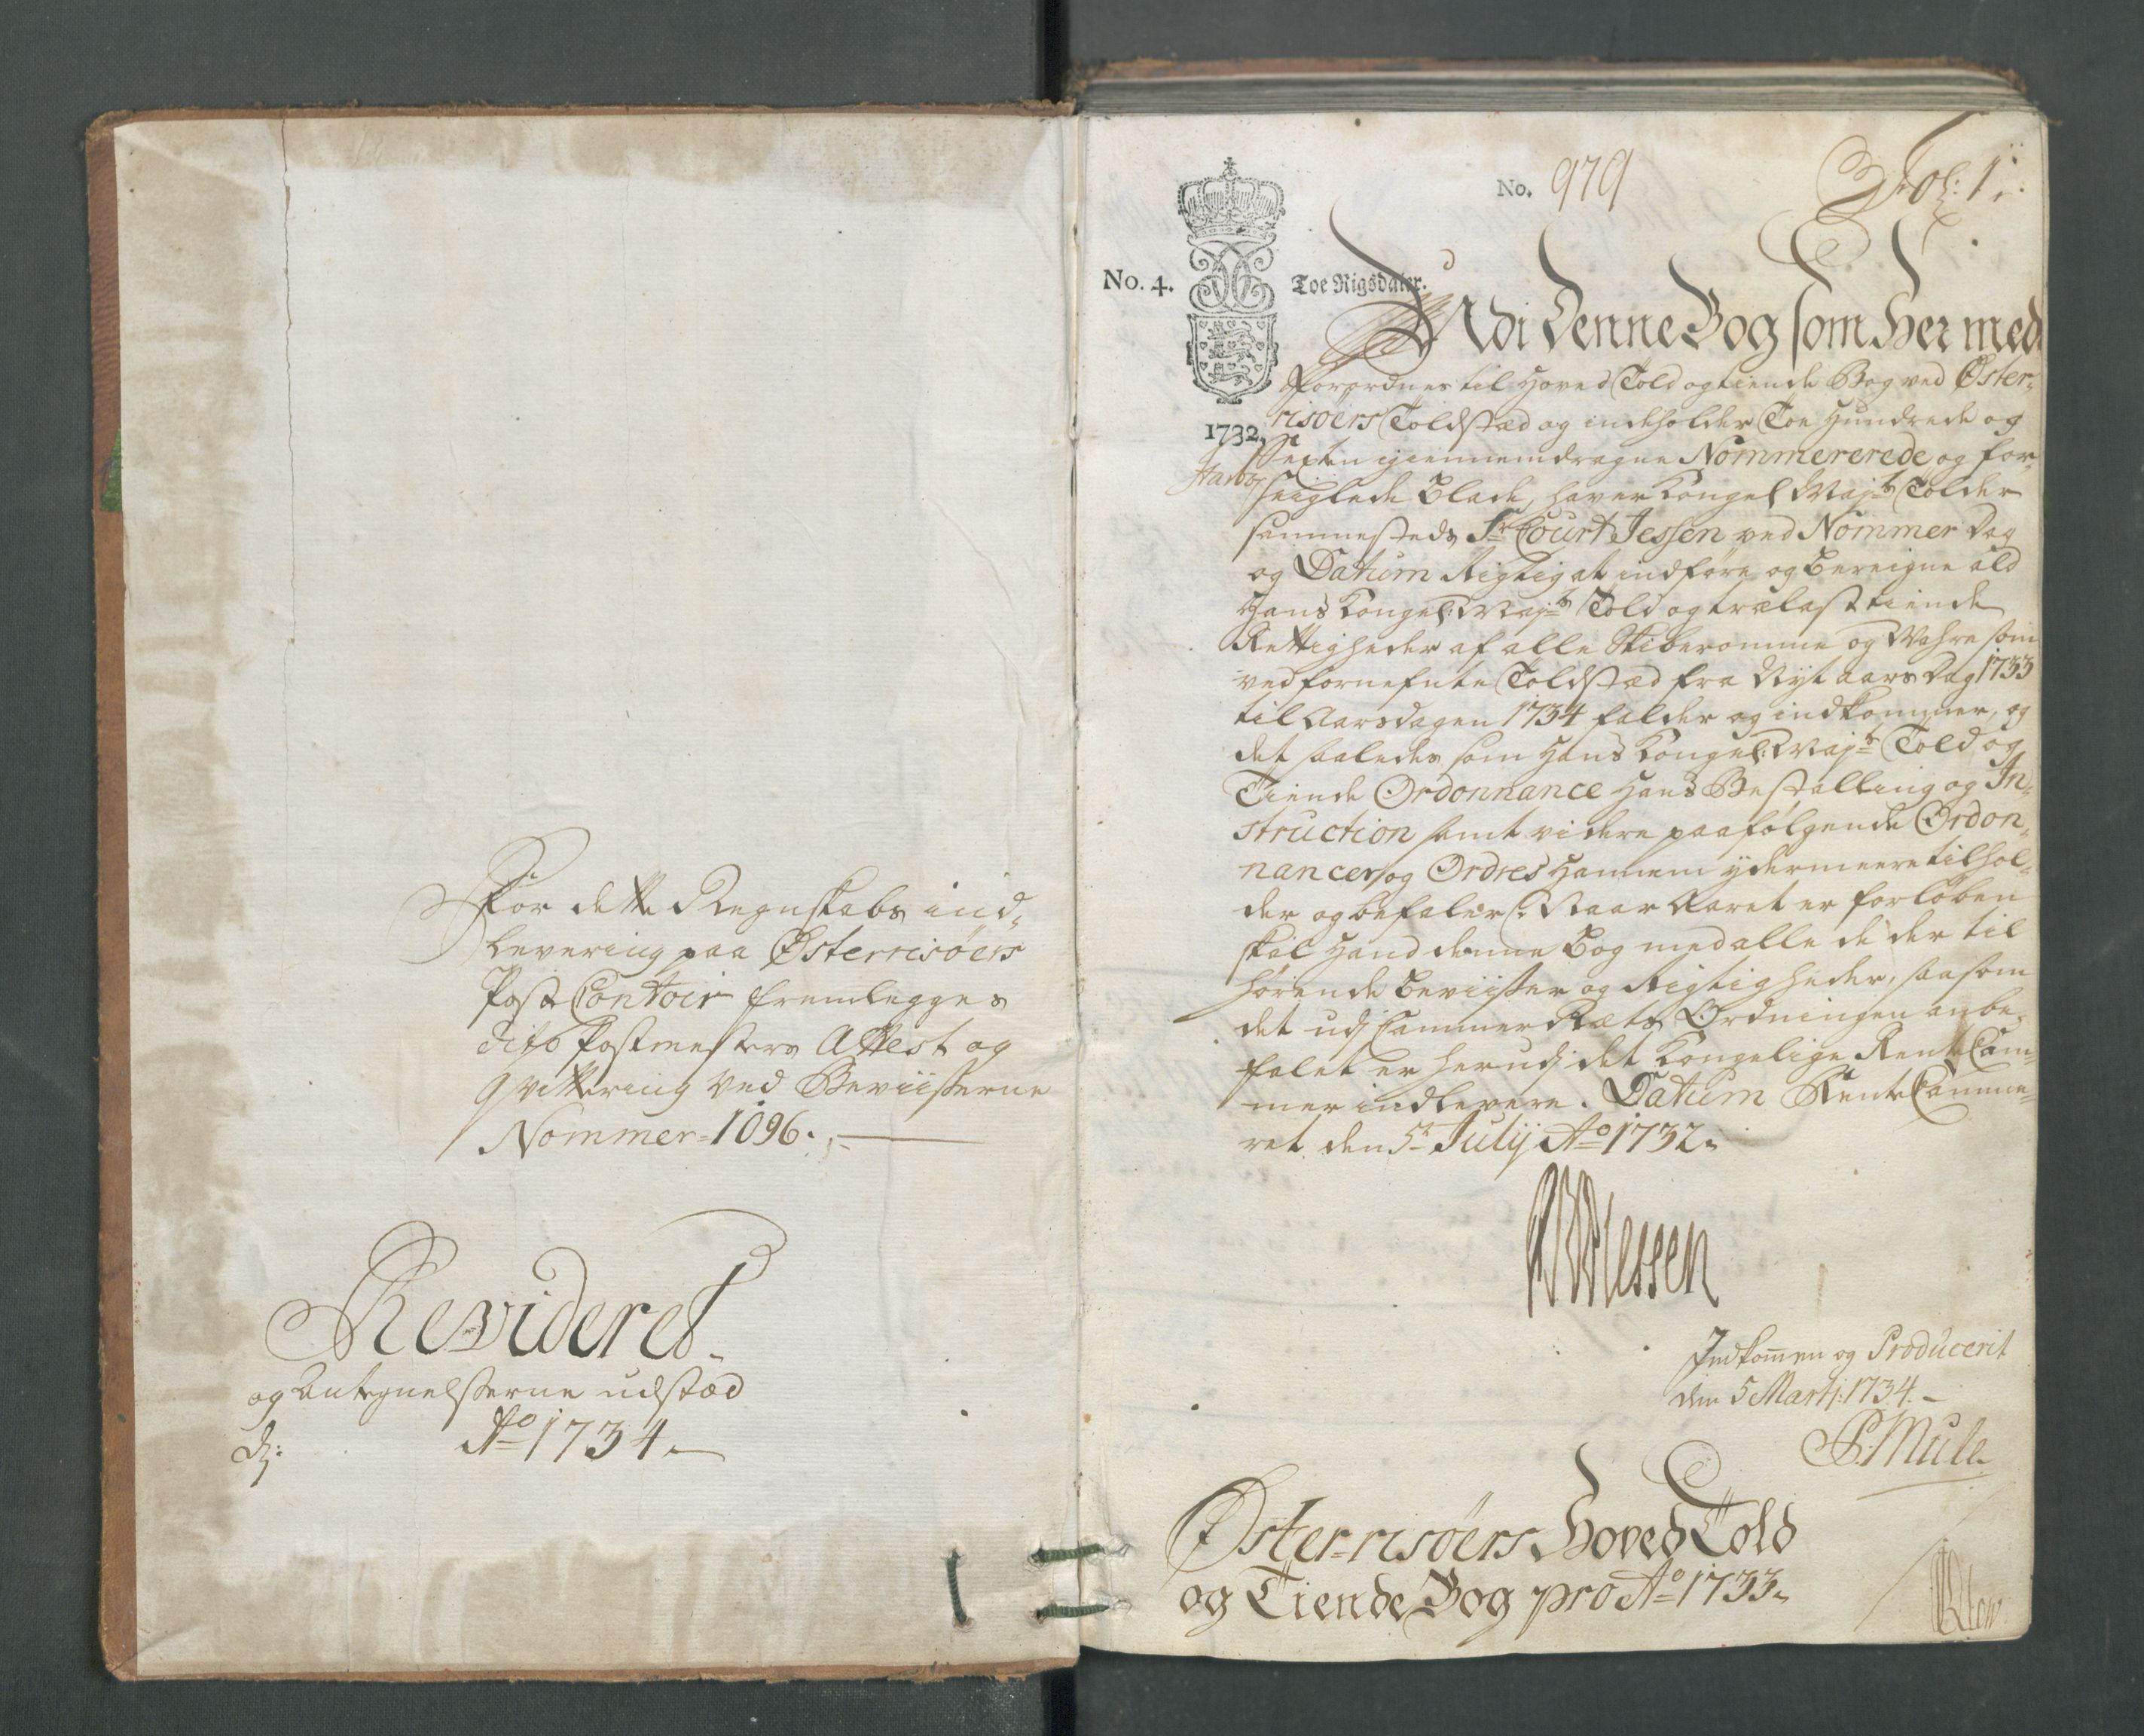 For dette Regnskabs ind¬
levering paa Østerrisøers
Post Contoir fremlegges
dito Postmesters Attest og
Qvittering ved Beviisserne
Nommer 1096.
Revideret
og Antegnelsserne udstæd
Ao 1734.
No. 979
Fol: 1.
No. 4.
Toe Rigsdaler.
1732.
Udi Denne Bog som Her med
Forordnes til Hoved Told og tiende Bog ved Øster¬
risøers Toldstæd og indeholder Toe Hundrede og
Sexten igiennemdragne Nommererede og for¬
seiglede Blade, haver Kongel Majts Tolder
sammesteds Sr Court Jessen ved Nommer Dag
og Datum Rigtig at indføre og bereigne ald
Hans Kongel: Majts Told og trælast tiende
Rettigheder af alle Skiberomme og Wahre som
ved fornefnte Toldstæd fra Nyt aars Dag 1733
til Aarsdagen 1734 falder og indkommer, og
det saaledes som Hans Kongel: Majts Told og
Tiende Ordonnance Hans Bestalling og In¬
struction samt videre paafølgende Ordon¬
nancer og Ordres Hannem ydermeere tilhol¬
der og befaler. Naar Aaret er forløben
skal Hand denne Bog med alle de der til
hørende beviisser og Rigtigheder, saasom
det udj Cammer Rætts Ordningen anbe¬
falet er herudj det Kongelige Rente Cam¬
mer indlevere. Datum Rente Camme¬
ret den 5t Julij Ao 1732.
Indkommen og Producerit
den 5 Martj: 1734.
P. Mule
Øster-risøers Hoved Told
og Tiende Bog pro Ao 1733.